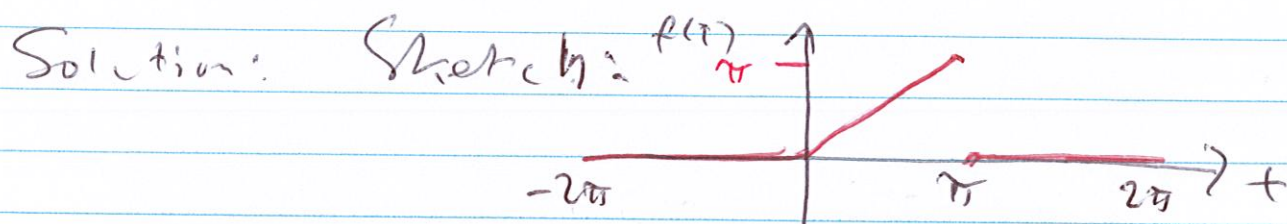 Solution: Sketch: f(t)
π
-2π π 2π t